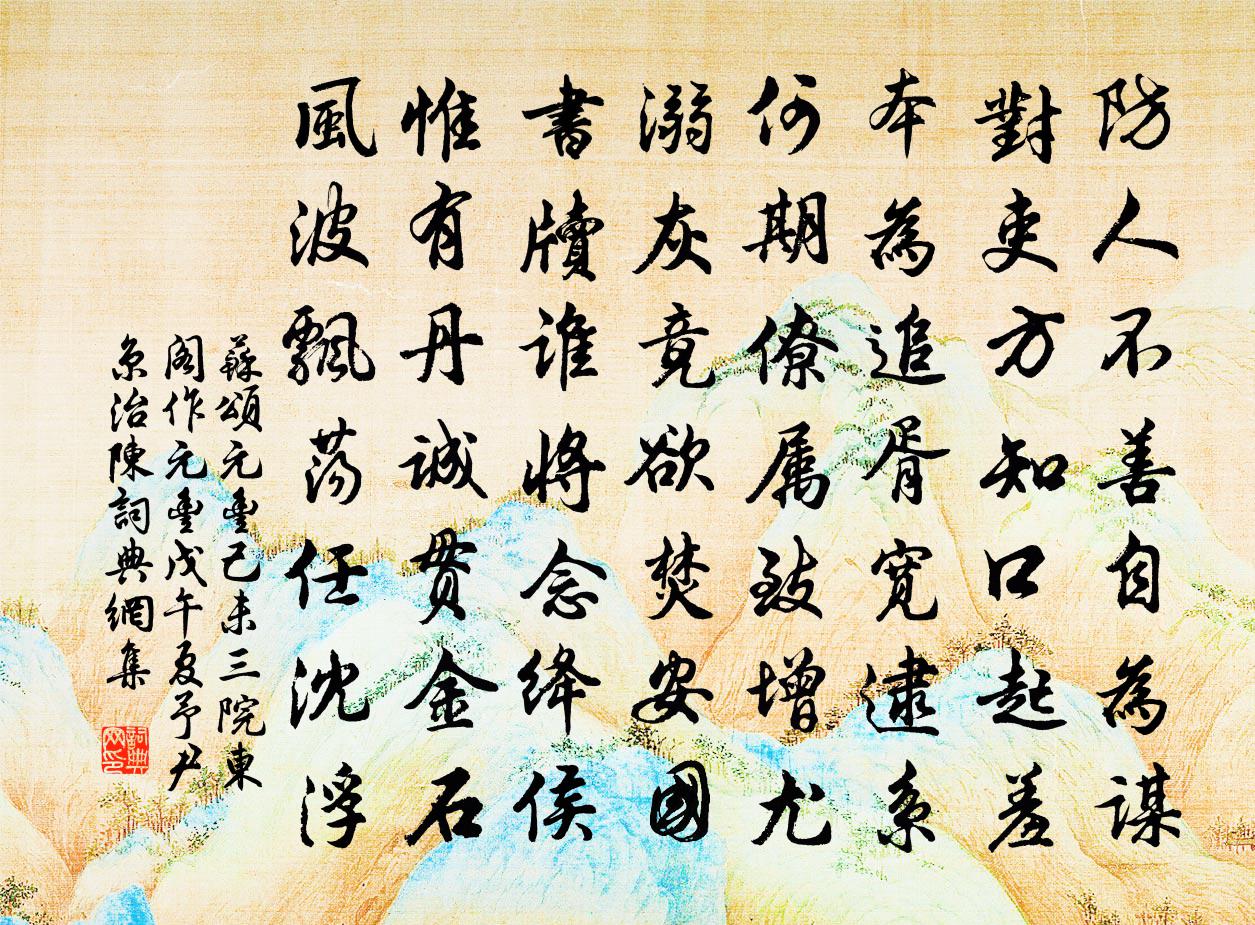 防人不善自為謀
對吏方知口起羞
本為追胥寬逮系
何期僚屬致增尤
溺灰竟欲焚安國
書牘誰將念絳侯
惟有丹誠貫金石
風波飄荡任沈浮
蘇頌元豐己未三院東
閣作元豐戊午夏予尹
京治陳詞典網集
詞典網印